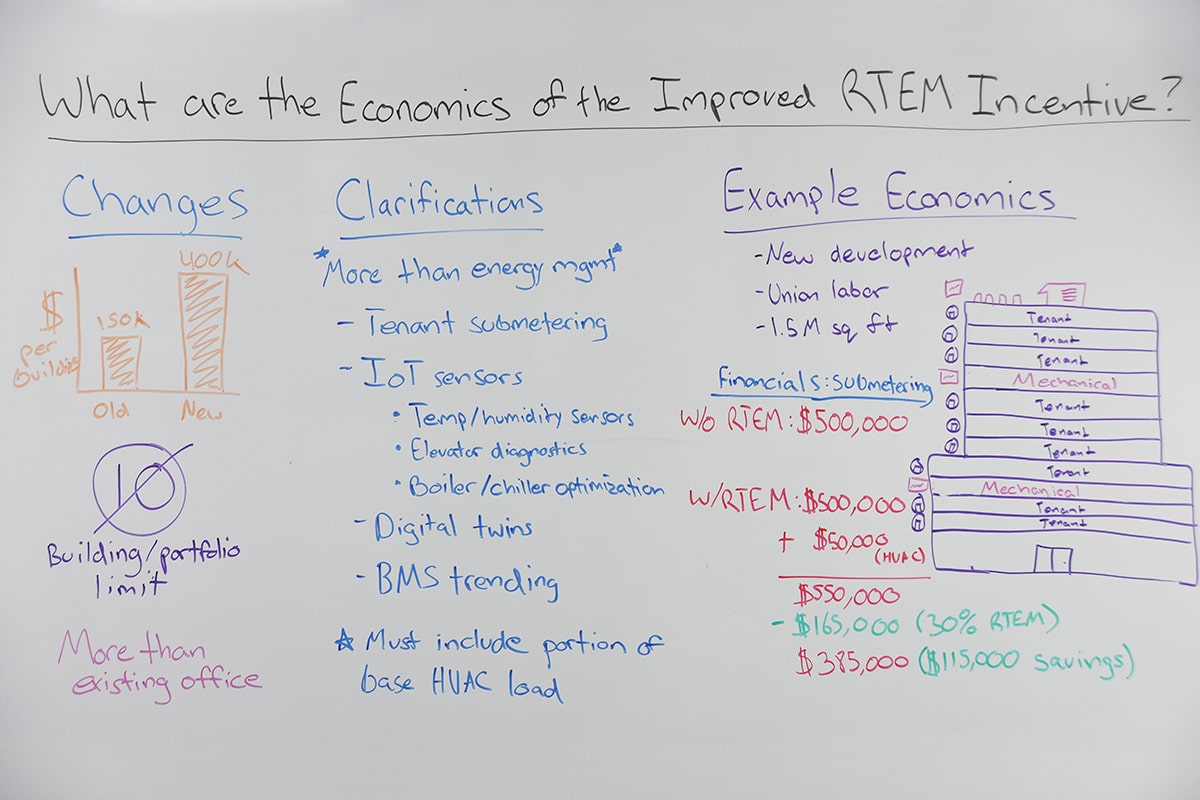 What are the Economics of the Improved RTEM Incentive?
Changes
$
per
building
150K
400K
Old
New
10
Building/portfolio
limit
More than
existing office
Clarifications
*More than energy mgmt*
- Tenant submetering
- IoT sensors
• Temp/humidity sensors
• Elevator diagnostics
• Boiler/chiller optimization
- Digital twins
- BMS trending
* Must include portion of
base HVAC load
Example Economics
- New development
- Union labor
- 1.5M sq ft
Financials: submetering
W/o RTEM: $500,000
W/RTEM: $500,000
+ $50,000
(HVAC)
$550,000
- $165,000 (30% RTEM)
$385,000 ($115,000 savings)
Tenant
Tenant
Tenant
Mechanical
Tenant
Tenant
Tenant
Tenant
Mechanical
Tenant
Tenant